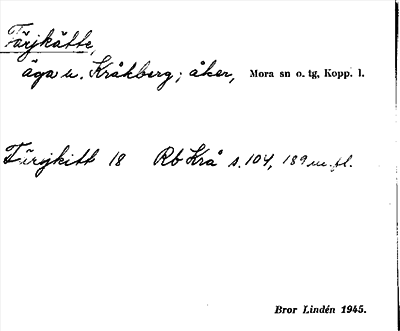 Färjkätte,
äga u. Kråkberg; åker, Mora sn o. tg, Kopp. l.
Färjkitt 18 Rb Krå s. 104, 189 m. fl.
Bror Lindén 1945.